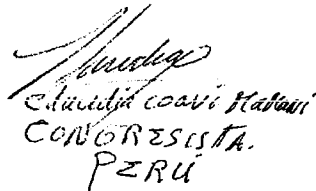 Claudia coari Mamani
CONGRESISTA.
PERÚ